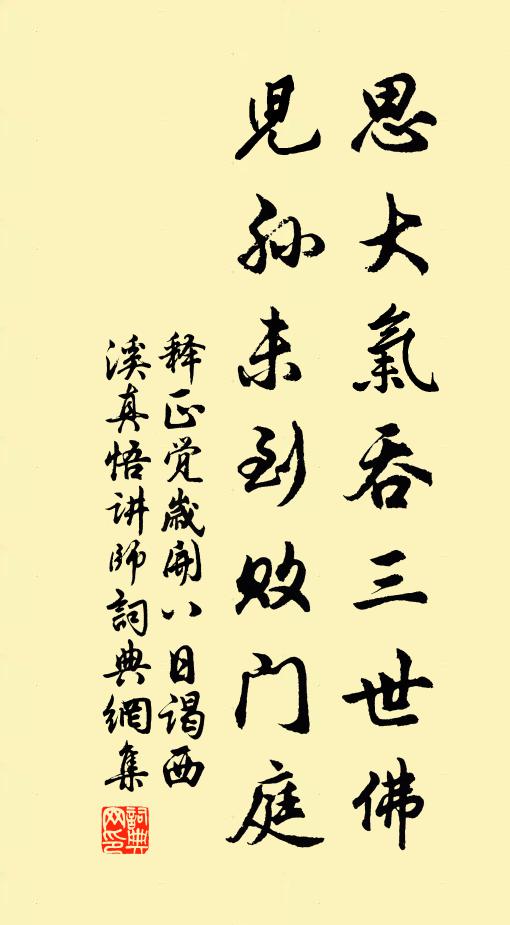 思大氣吞三世佛
兒孙未到败门庭
释正觉歲開八日谒西
溪真悟讲师詞典網集
詞典
网印